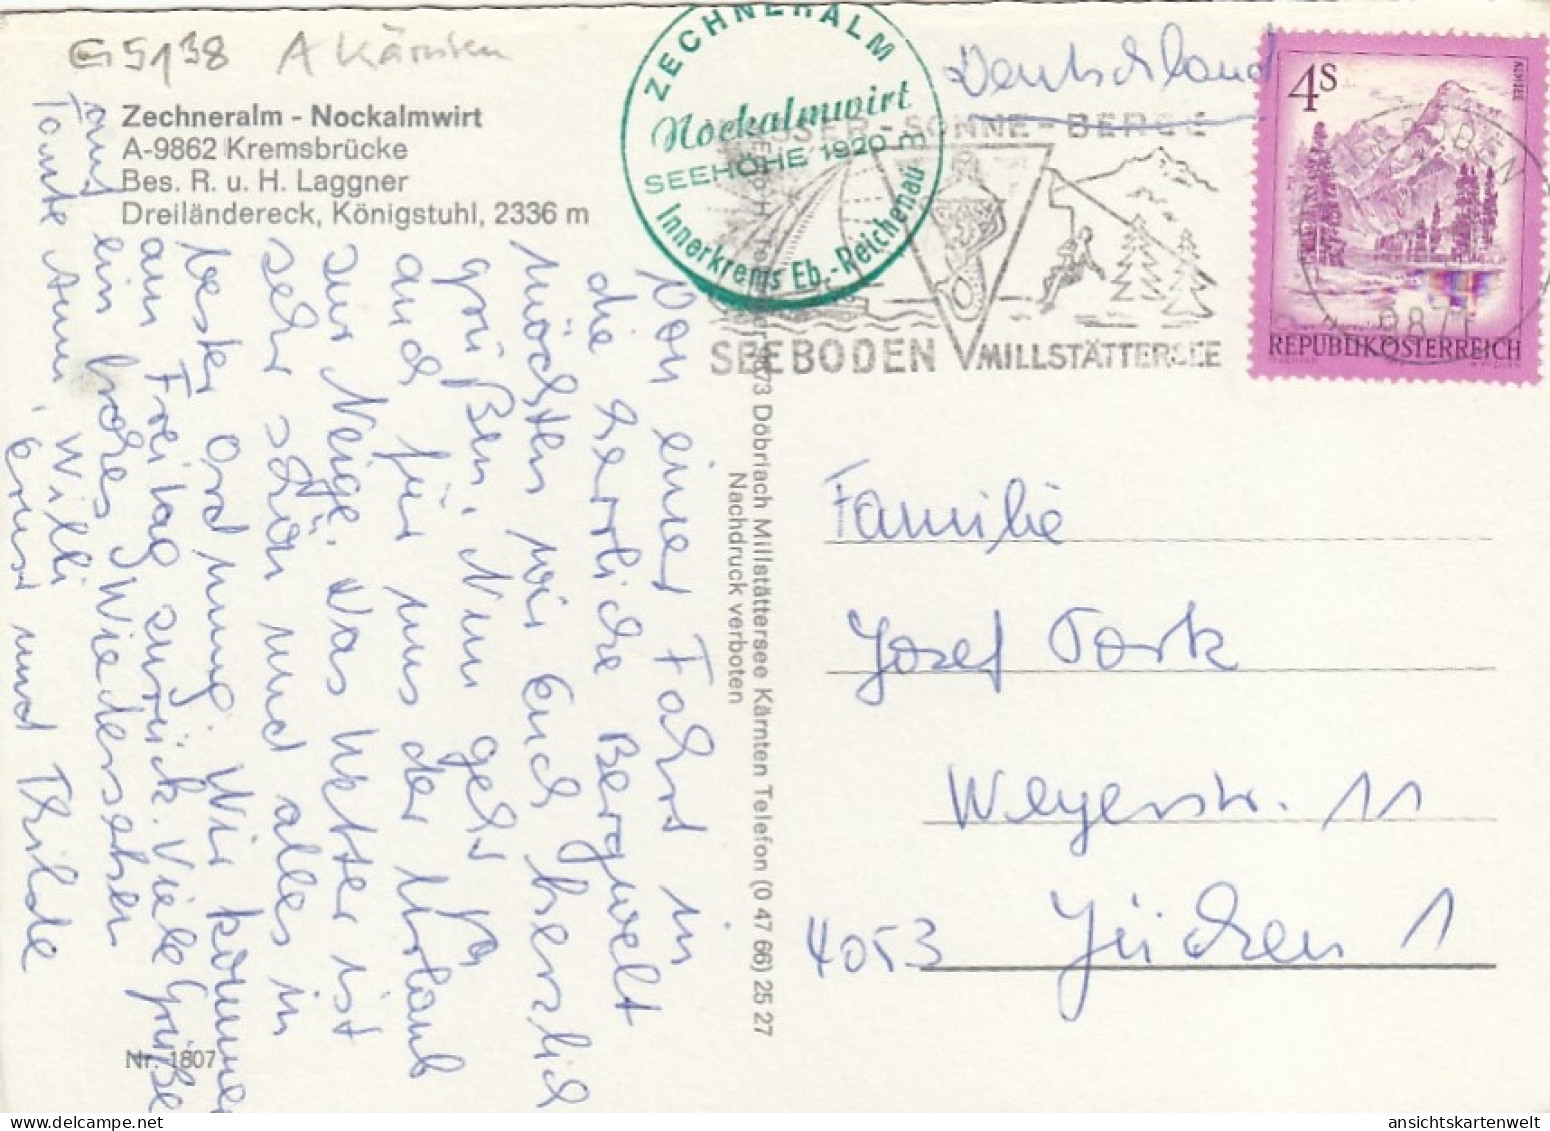 G5138 A Kärnten
Zechneralm - Nockalmwirt
A-9862 Kremsbrücke
Bes. R. u. H. Laggner
Dreiländereck, Königstuhl, 2336 m
ZECHNERALM
Nockalmwirt
SEEHÖHE 1920 m
Innerkrems Eb.-Reichenau
Deutschland
WASSER-SONNE-BERGE
SEEBODEN MILLSTÄTTERSEE
4S
ALMSEE
REPUBLIK ÖSTERREICH
SEEBODEN
9871
Von einer Fahrt in
die herrliche Bergwelt
möchten wir Euch herzlich
grüßen. Nun geht
auch für uns der Urlaub
zur Neige. Das Wetter ist
sehr schön und alles in
bester Ordnung. Wir kommen
am Freitag zurück. Viele Grüße
und ein frohes Wiedersehen
Tante Anni, Willi
Ernst und Thilde
9873 Döbriach Millstättersee Kärnten Telefon (0 47 66) 25 27
Nachdruck verboten
Familie
Josef Tork
Weyerstr. 11
4053 Jüchen 1
Nr. 1807
ansichtskartenwelt.com